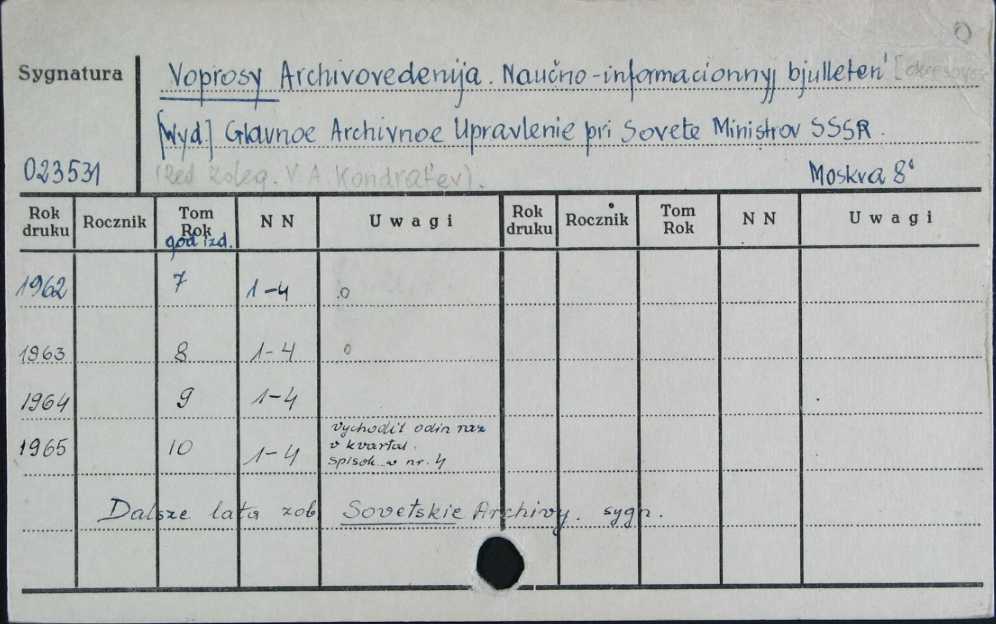 Sygnatura
Voprosy Archivovedenija. Naučno-informacionnyj bjulleten'
[Wyd.] Glavnoe Archivnoe Upravlenie pri Sovete Ministrov SSSR.
023531 (Red. Koleg. V. A. Kondrat'ev). Moskva 8°
Rok druku Rocznik Tom Rok N N Uwagi Rok druku Rocznik Tom Rok N N Uwagi
god izd.
1962 7 1-4 o
1963 8 1-4 o
1964 9 1-4
1965 10 1-4 vychodit odin raz
v kvartal.
spisok v nr. 4
Dalsze lata zob Sovetskie Archivy. sygn.